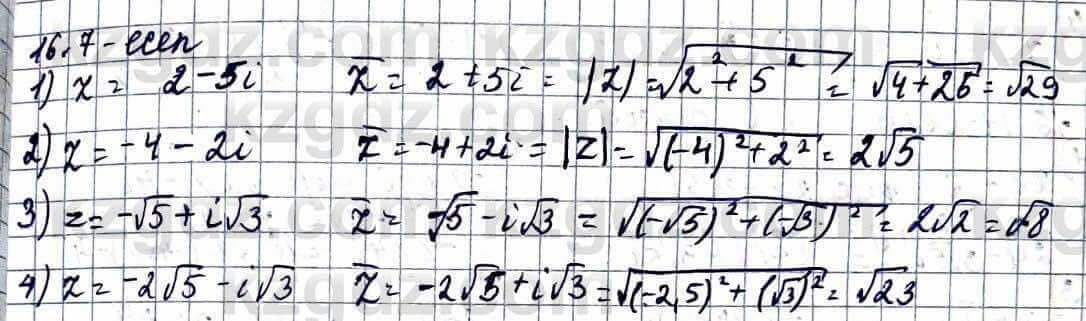 16.7-есеп
1) z = 2-5i z̅ = 2+5i = |z| = √(2²+5²) = √(4+25) = √29
2) z = -4-2i z̅ = -4+2i = |z| = √((-4)²+2²) = 2√5
3) z = -√5+i√3 z̅ = -√5-i√3 = √((-√5)²+(-√3)²) = 2√2 = √8
4) z = -2√5-i√3 z̅ = -2√5+i√3 = √((-2,5)²+(√3)²) = √23